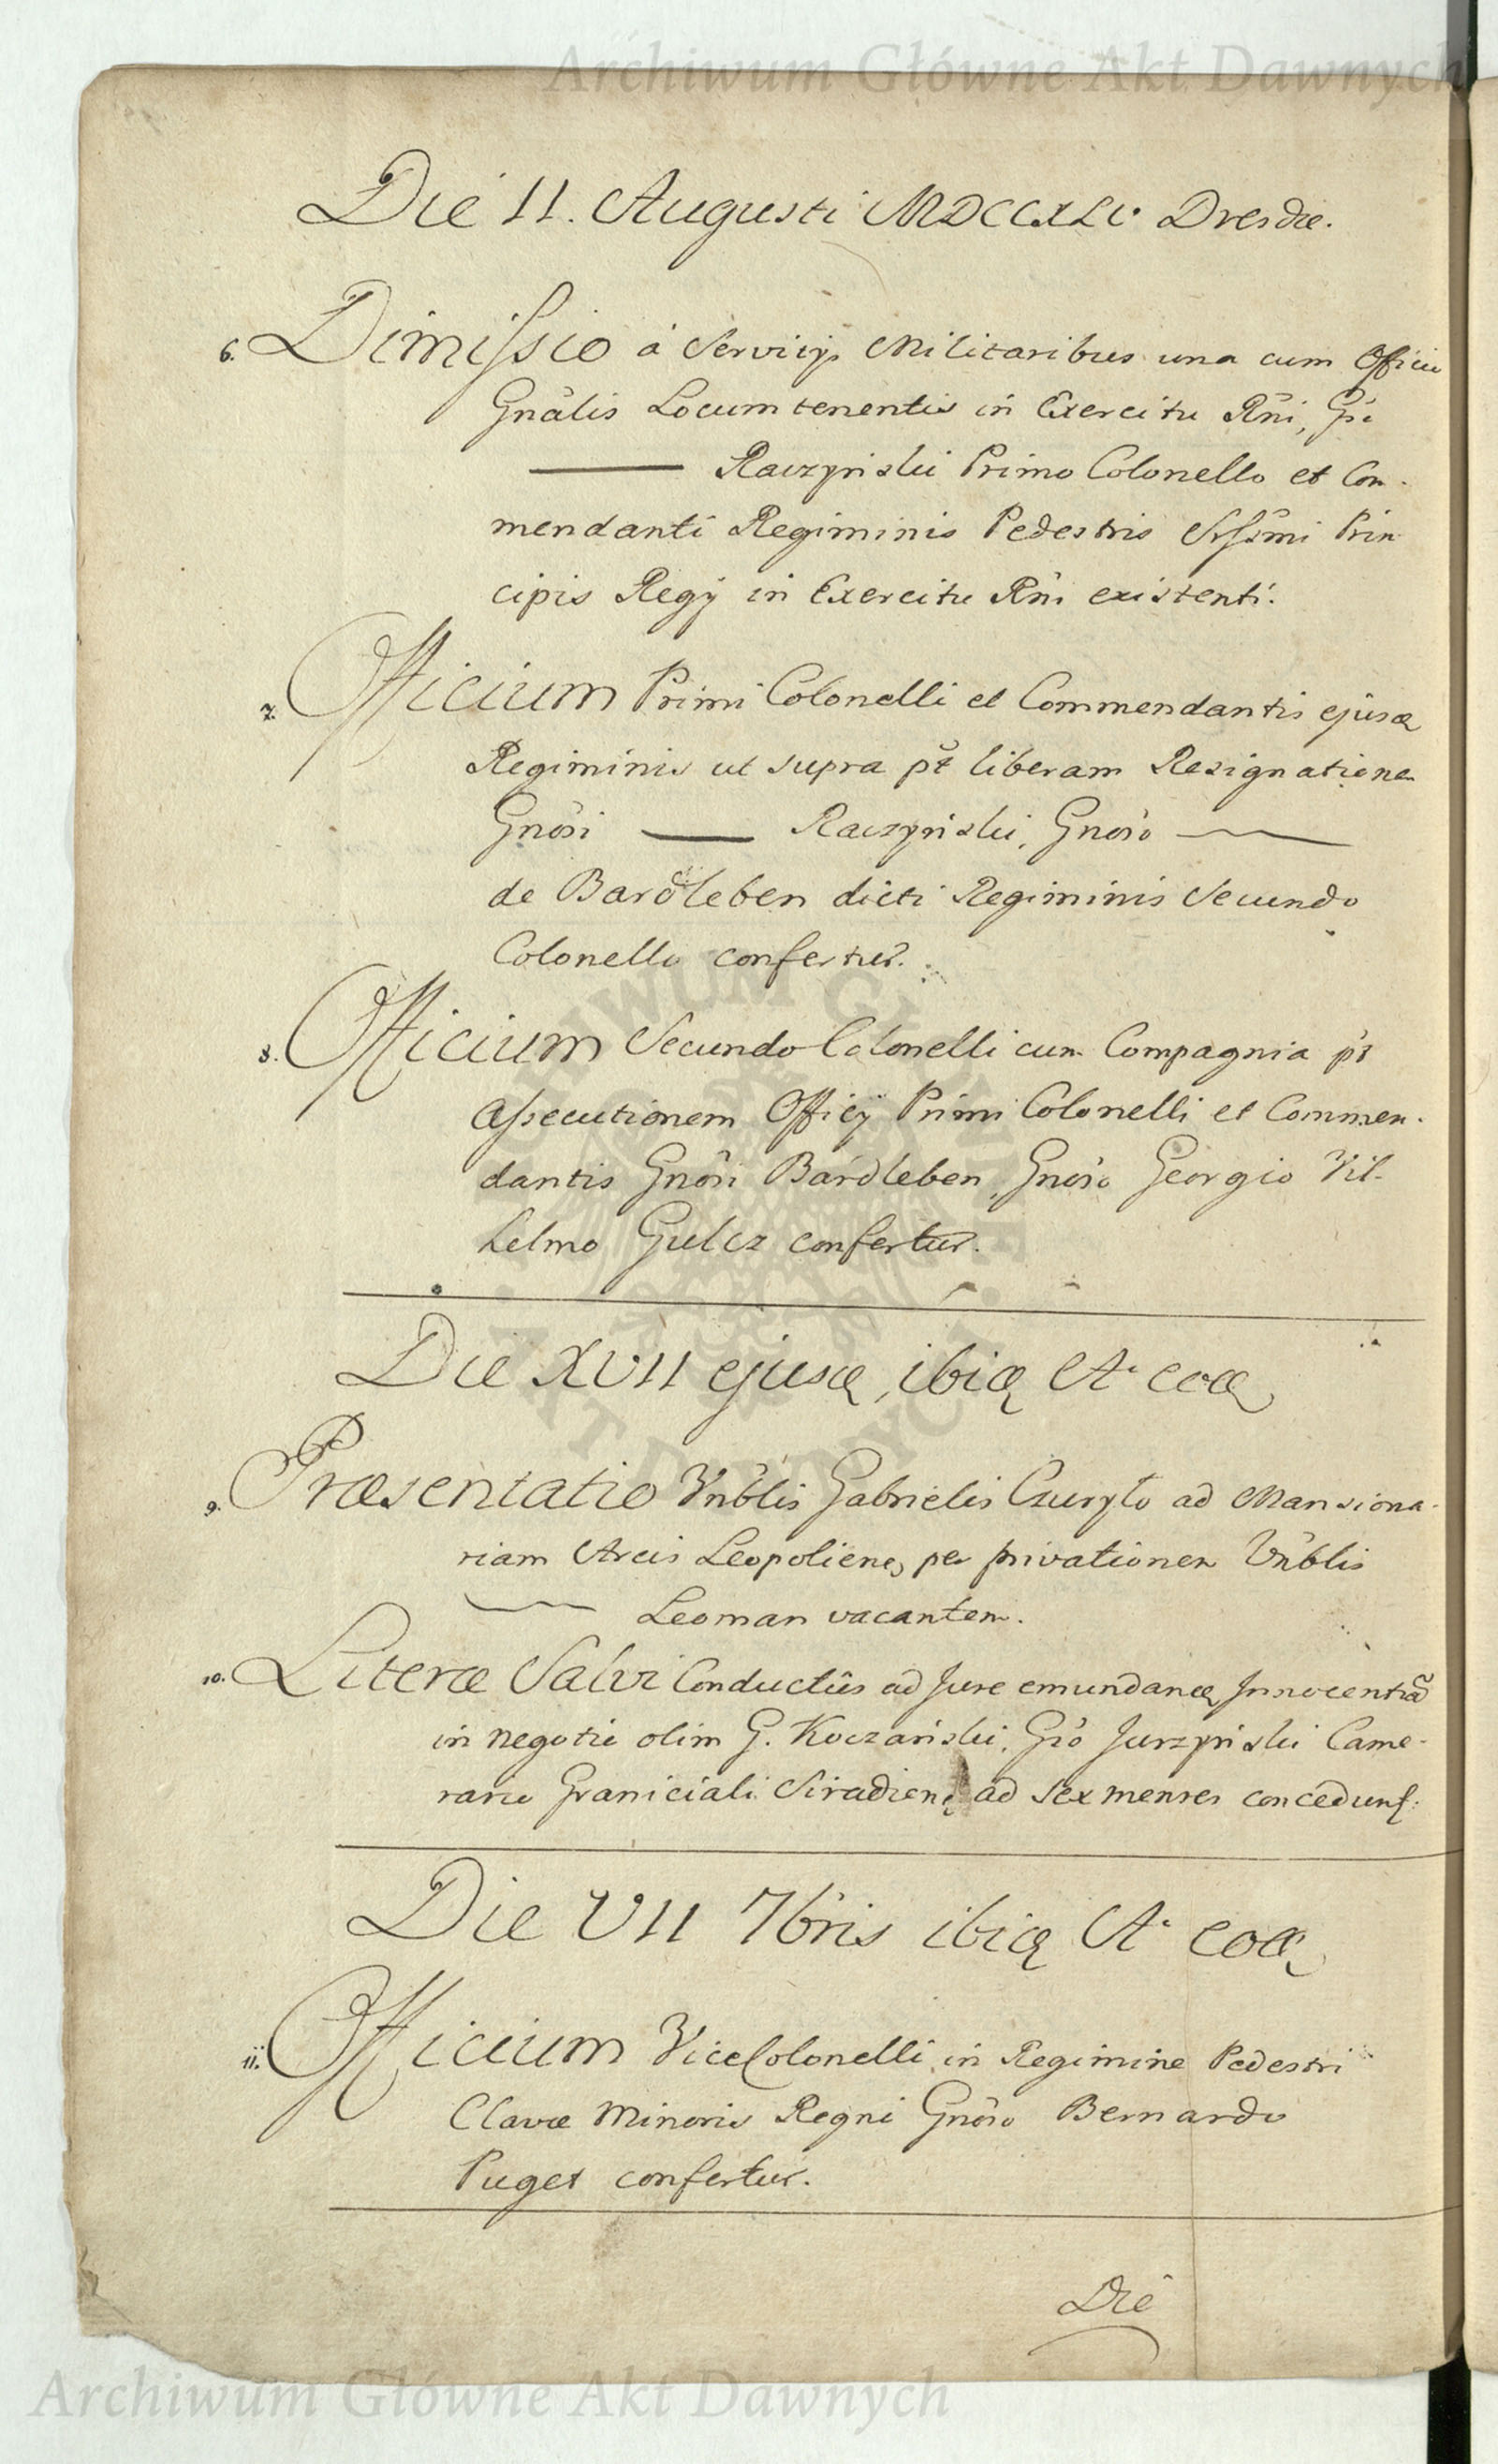 Archiwum Główne Akt Dawnych
Die 11. Augusti MDCCXLV Dresdæ.
6. Dimissio á Servicijs Militaribus una cum Officio
Gnâlis Locumtenentis in Exercitu Rñi, Gsi
Raczyński Primo Colonello et Com-
mendanti Regiminis Pedestris Srſsmi Prin
cipis Regij in Exercitu Rñi existenti.
7. Officium Primi Colonelli et Commendantis ejusd
Regiminis ut supra pt liberam Resignationem
Gnôsi Raczyński, Gnôso
de Bardleben dicti Regiminis Secundo
Colonello confertur.
8. Officium Secundo Colonelli cum Compagnia pt
Assecutionem Officij Primi Colonelli et Commen-
dantis Gnôsi Bardleben, Gnôso Georgio Vil-
helmo Gulcz confertur.
Die XVII ejusd, ibid A° eod
9. Præsentatio Vñblis Gabrielis Czuryło ad Mansiona-
riam Arcis Leopoliens, per privationem Vñblis
Leoman vacantem.
10. Literæ Salvi Conductûs ad Jure emundand Innocentiã
in negotio olim G. Koczański, Gsô Jurzyński Came-
rario Graniciali Siradiens ad sex menses concedunt.
Die VII 7bris ibid A° eod
11. Officium ViceColonelli in Regimine Pedestri
Clavæ Minoris Regni Gnôso Bernardo
Puget confertur.
Die
Archiwum Główne Akt Dawnych